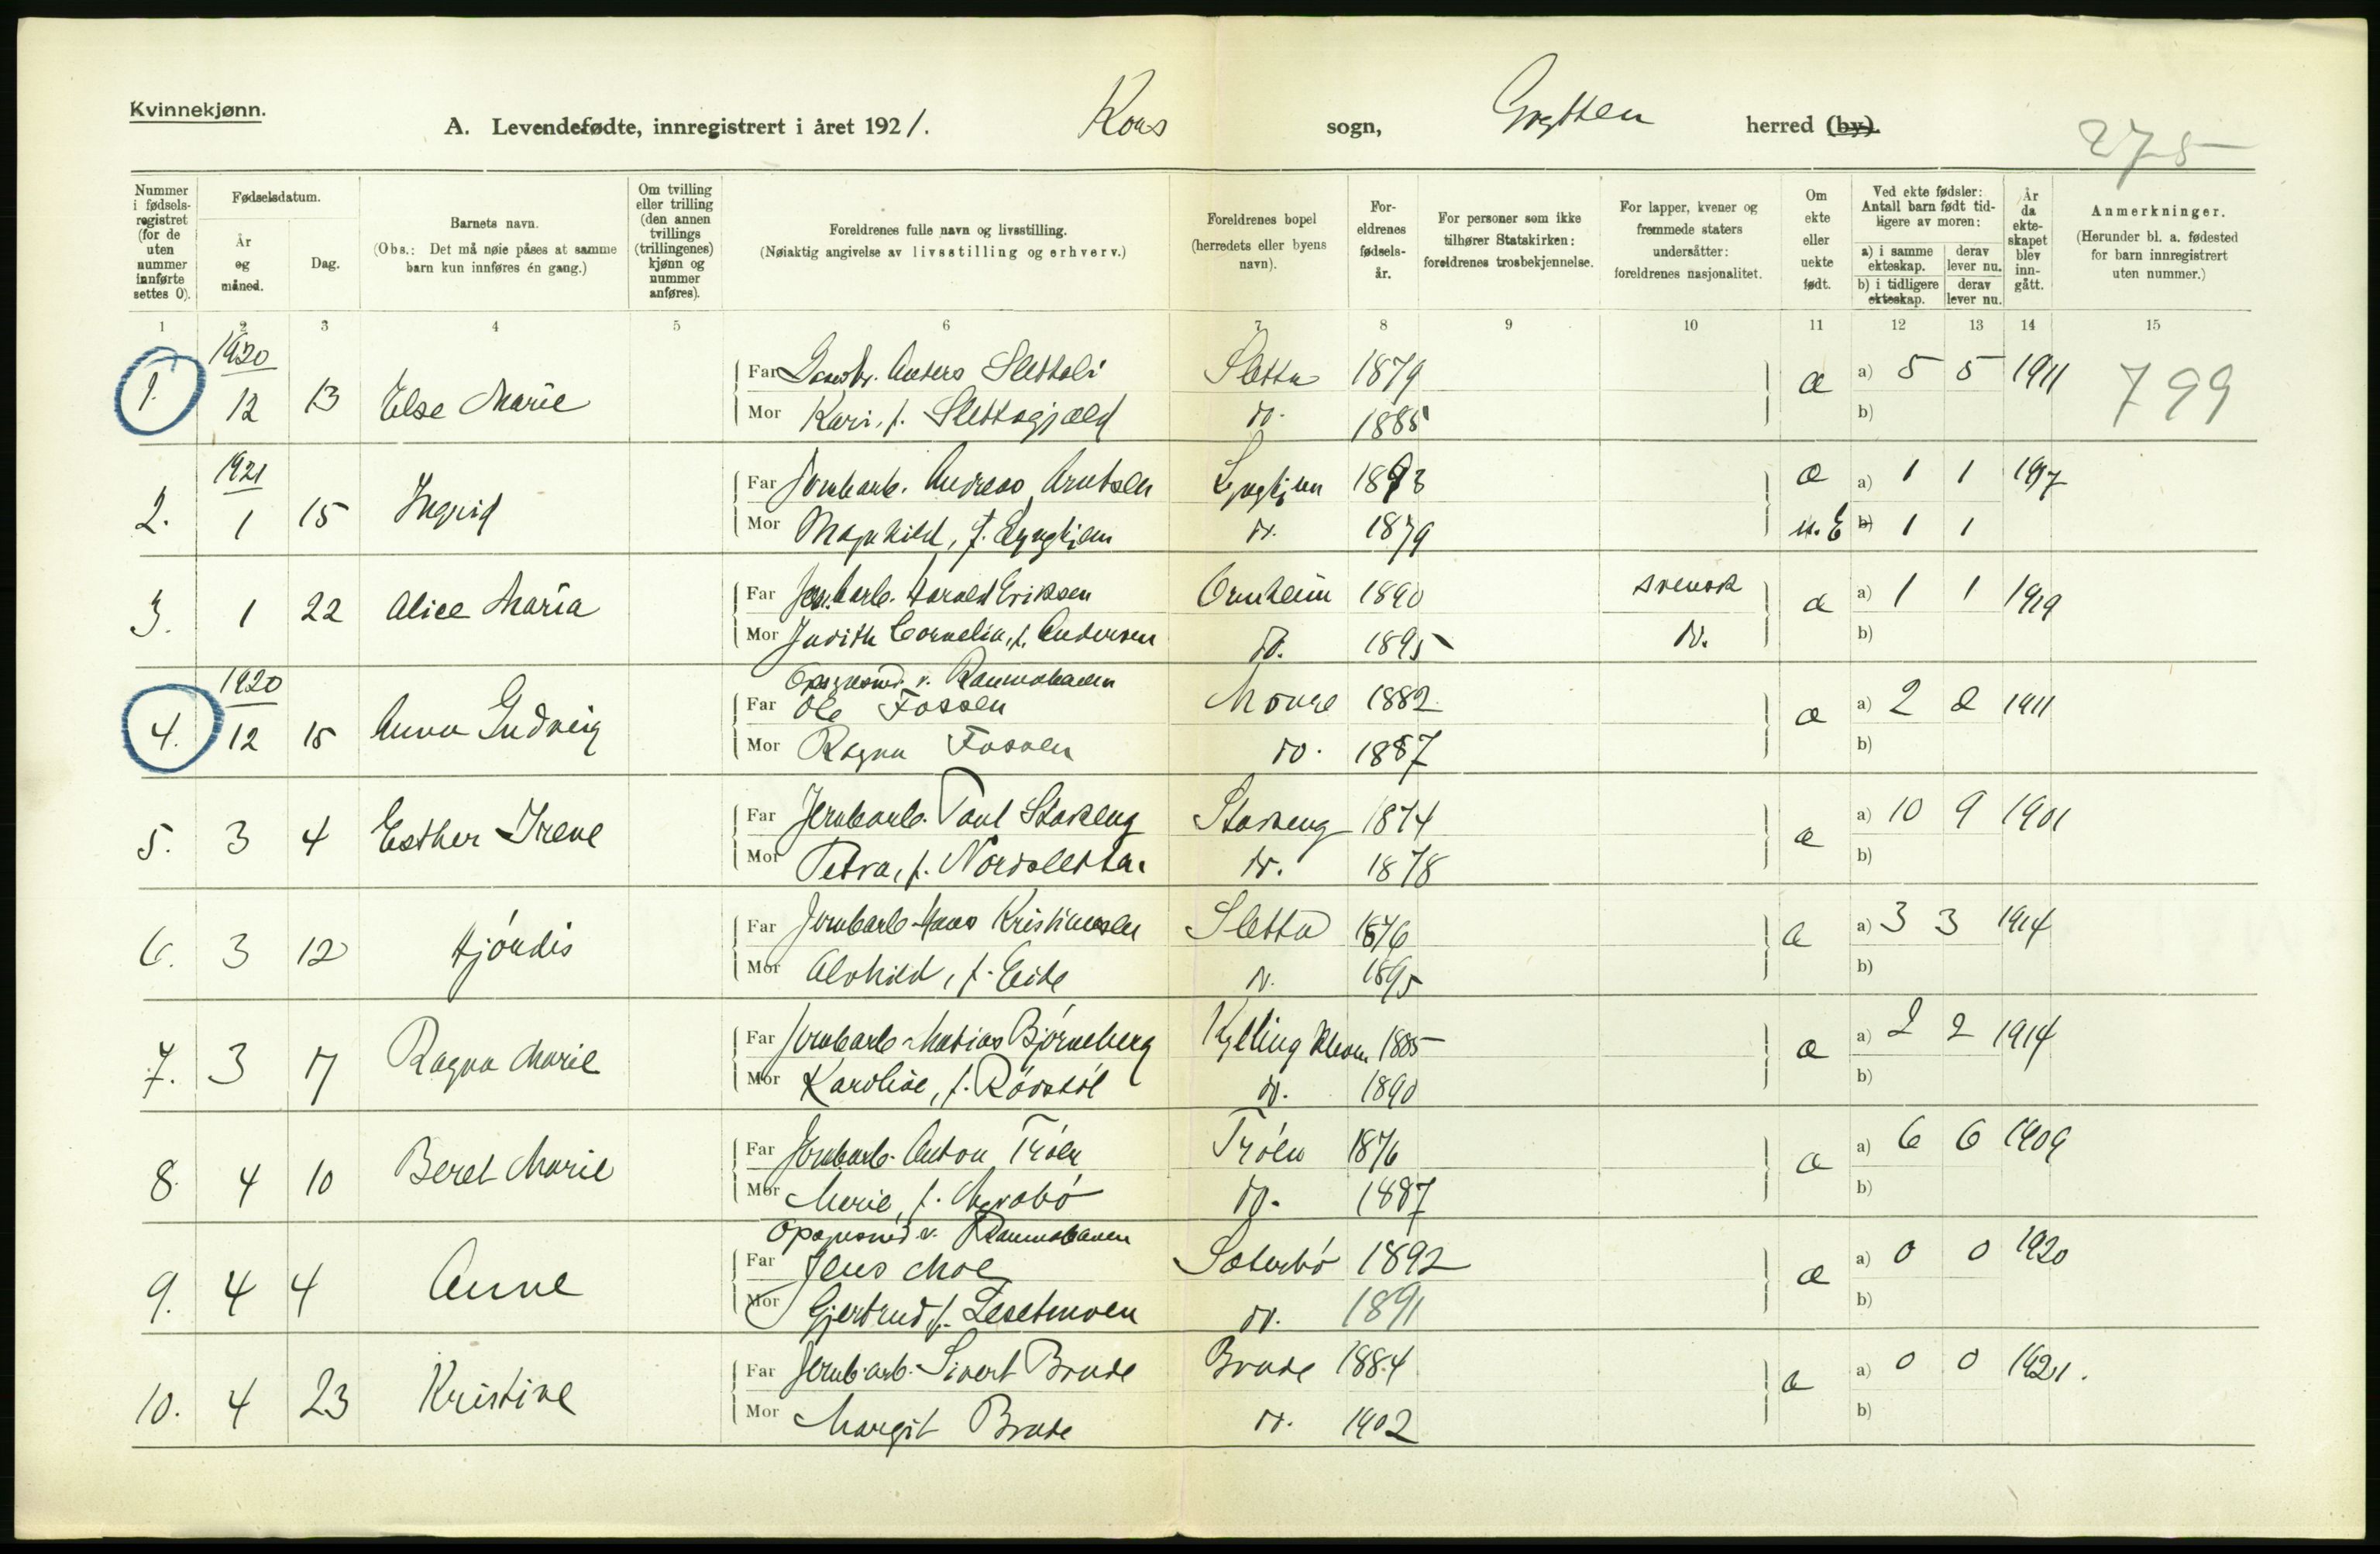 Kvinnekjønn.
A. Levendefødte, innregistrert i året 1921. Kors sogn, Grytten herred (by).
275
Nummer i fødsels-registret (for de uten nummer innførte settes 0).
Fødselsdatum.
År og måned.
Dag.
Barnets navn.
(Obs.: Det må nøie påses at samme barn kun innføres én gang.)
Om tvilling eller trilling (den annen tvillings (trillingenes) kjønn og nummer anføres).
Foreldrenes fulle navn og livsstilling.
(Nøiaktig angivelse av livsstilling og erhverv.)
Foreldrenes bopel (herredets eller byens navn).
For-eldrenes fødsels-år.
For personer som ikke tilhører Statskirken: foreldrenes trosbekjennelse.
For lapper, kvener og fremmede staters undersåtter: foreldrenes nasjonalitet.
Om ekte eller uekte født.
Ved ekte fødsler: Antall barn født tid-ligere av moren:
a) i samme ekteskap. derav lever nu.
b) i tidligere ekteskap. derav lever nu.
År da ekte-skapet blev inn-gått.
Anmerkninger.
(Herunder bl. a. fødested for barn innregistrert uten nummer.)
1 2 3 4 5 6 7 8 9 10 11 12 13 14 15
1920
1. 12 13 Else Marie
Far Anders Slettali Sletta 1879 æ a) 5 5 1911 799
Mor Kari, f. Slettagjæld do. 1885 b)
1921
2. 1 15 Ingrid
Far Jernbarb. Andreas Arntsen Lynghjem 1893 æ a) 1 1 1917
Mor Magnhild, f. Lynghjem do. 1879 u.E b) 1 1
3. 1 22 Alice Maria
Far Jernbarb. Harald Eriksen Ormheim 1890 svensk æ a) 1 1 1919
Mor Judith Cornelia, f. Andersen do. 1895 do. b)
1920
4. 12 15 Anna Gudveig
Opsynsmd. v. Raumabanen
Far Ole Fossen Monge 1882 æ a) 2 2 1911
Mor Ragna Fossen do. 1887 b)
5. 3 4 Esther Irene
Far Jernbarb. Paul Stakeng Stakeng 1874 æ a) 10 9 1901
Mor Petra, f. Nordsletta. do. 1878 b)
6. 3 12 Hjördis
Far Jernbarb. Hans Kristiansen Sletta 1876 æ a) 3 3 1914
Mor Alvhild, f. Eide do. 1895 b)
7. 3 17 Ragna Marie
Far Jernbarb. Matias Björneberg Kylling 1885 æ a) 2 2 1914
Mor Karoline, f. Rödstöl do. 1890 b)
8. 4 10 Beret Marie
Far Jernbarb. Anton Tröen Tröen 1876 æ a) 6 6 1909
Mor Marie, f. do. 1887 b)
Opsynsmd. v. Raumabanen
9. 4 4 Anne
Far Jens Moe Sæterbö 1892 æ a) 0 0 1920
Mor Gjertrud f. do. 1891 b)
10. 4 23 Kristine
Far Jernb.arb. Sivert Brude Brude 1884 æ a) 0 0 1921.
Mor Margit Brude do. 1902 b)